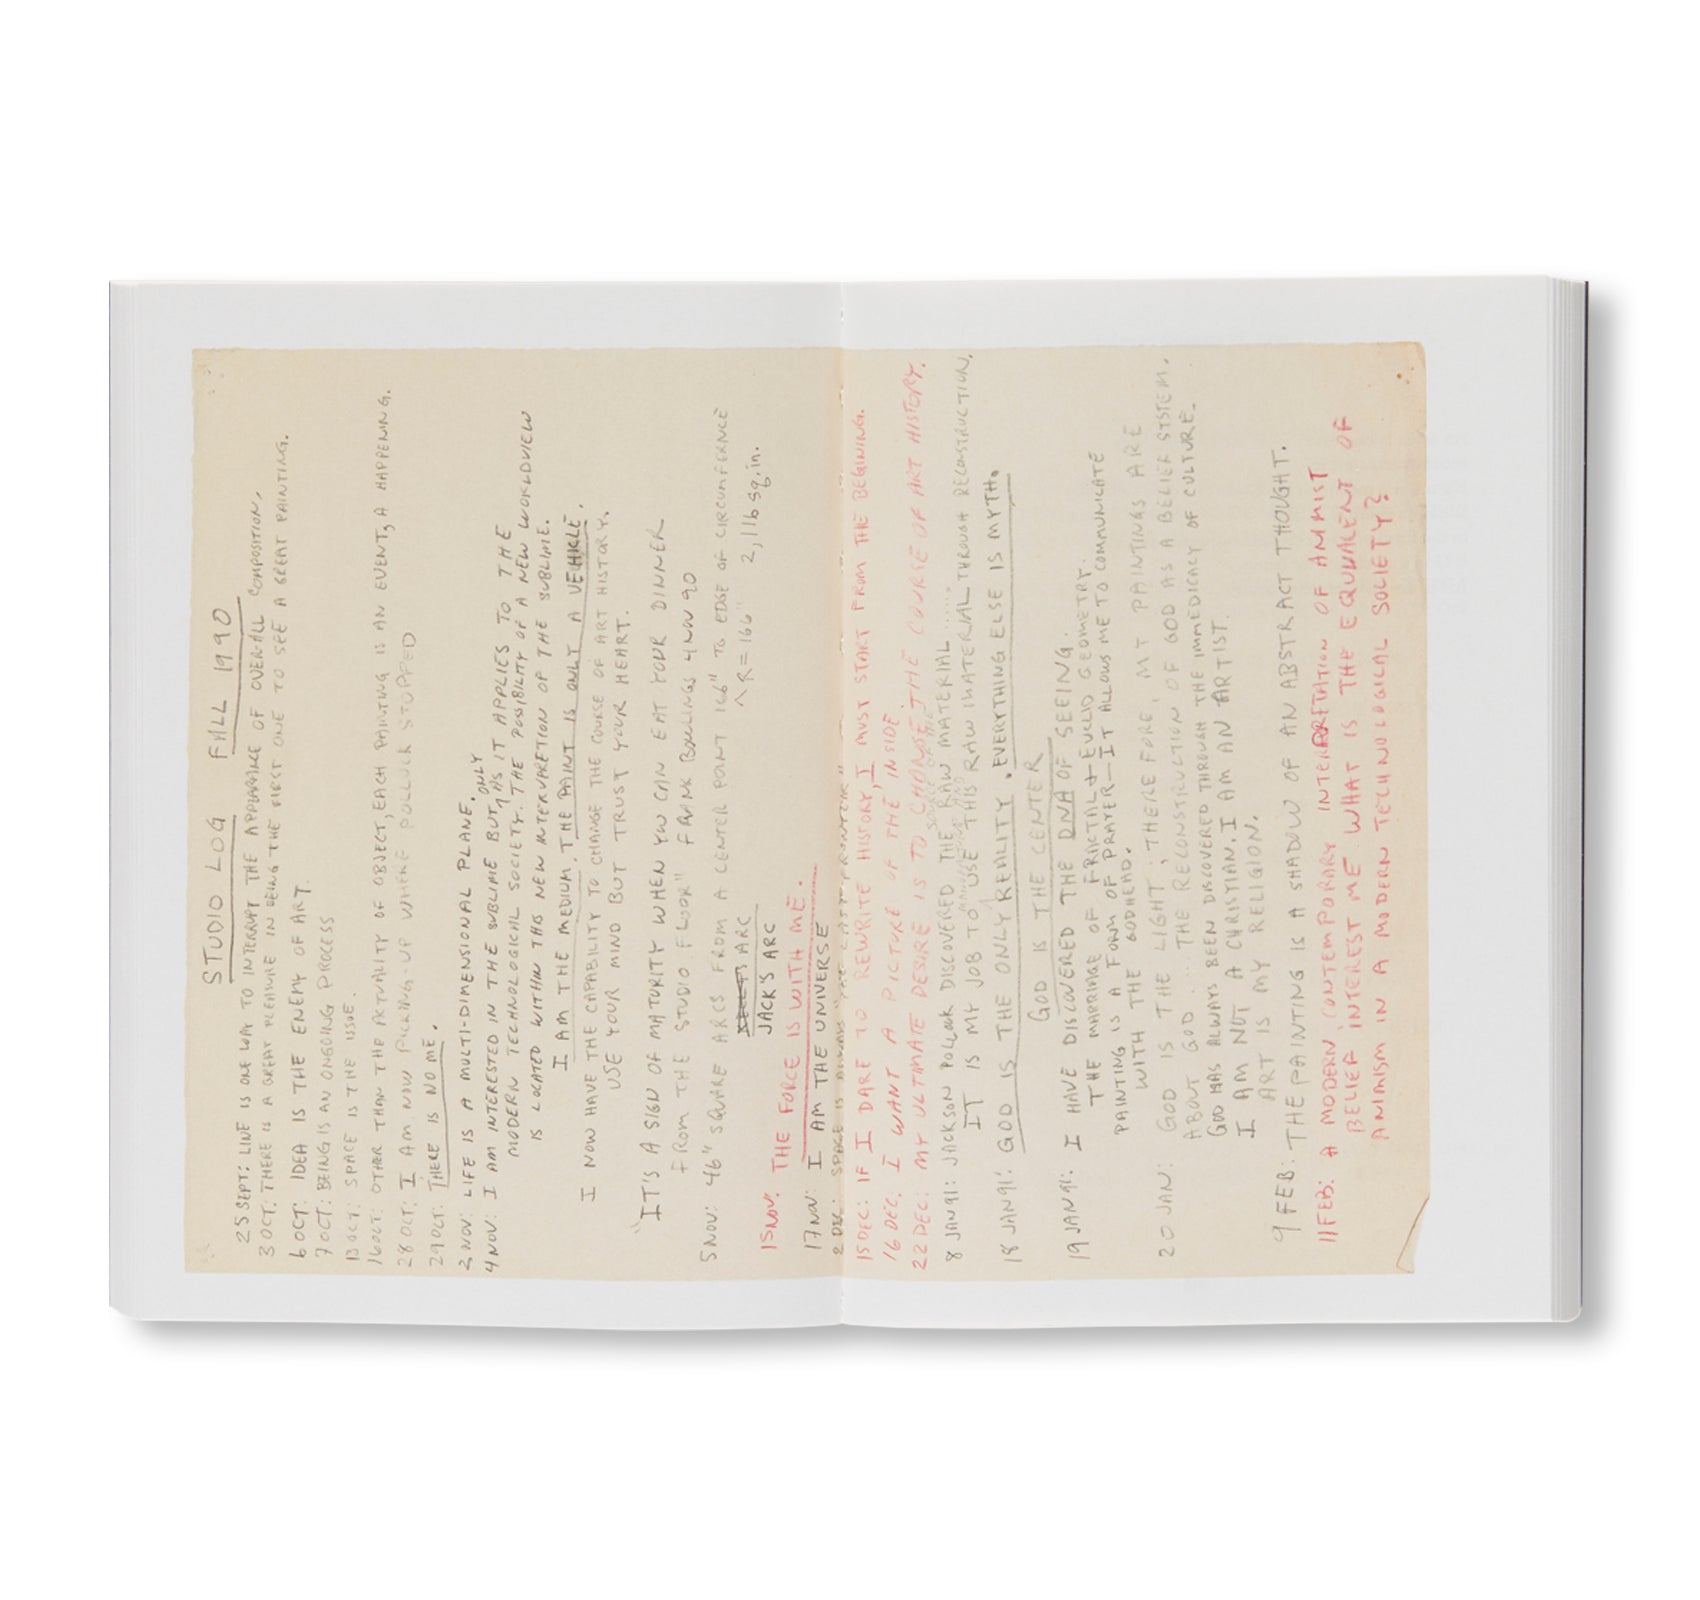 STUDIO LOG FALL 1990
25 SEPT: LINE IS ONE WAY TO INTERRUPT THE APPEARANCE OF OVER-ALL COMPOSITION.
3 OCT: THERE IS A GREAT PLEASURE IN BEING THE FIRST ONE TO SEE A GREAT PAINTING.
6 OCT: IDEA IS THE ENEMY OF ART.
7 OCT: BEING IS AN ONGOING PROCESS
13 OCT: SPACE IS THE ISSUE.
16 OCT: OTHER THAN THE ACTUALITY OF OBJECT, EACH PAINTING IS AN EVENT, A HAPPENING.
28 OCT: I AM NOW PICKING-UP WHERE POLLOCK STOPPED
29 OCT: THERE IS NO ME.
2 NOV: LIFE IS A MULTI-DIMENSIONAL PLANE.
4 NOV: I AM INTERESTED IN THE SUBLIME BUT ONLY AS IT APPLIES TO THE
MODERN TECHNOLOGICAL SOCIETY. THE POSSIBILITY OF A NEW WORLDVIEW
IS LOCATED WITHIN THIS NEW INTERPRETION OF THE SUBLIME.
I AM THE MEDIUM. THE PAINT IS ONLY A VEHICLE.
I NOW HAVE THE CAPABILITY TO CHANGE THE COURSE OF ART HISTORY.
USE YOUR MIND BUT TRUST YOUR HEART.
"IT'S A SIGN OF MATURITY WHEN YOU CAN EAT YOUR DINNER
FROM THE STUDIO FLOOR" FRANK BOWLINGS 4 NOV 90
5 NOV: 46" SQUARE ARCS FROM A CENTER POINT 166" TO EDGE OF CIRCUMFERENCE
R=166" 2,116 sq.in.
ARC
JACK'S ARC
15 NOV: THE FORCE IS WITH ME.
17 NOV: I AM THE UNIVERSE
2 DEC: SPACE IS ALWAYS "THE LAST FRONTIER"
15 DEC: IF I DARE TO REWRITE HISTORY, I MUST START FROM THE BEGINING.
16 DEC. I WANT A PICTURE OF THE INSIDE.
22 DEC: MY ULTIMATE DESIRE IS TO CHANGE THE COURSE OF ART HISTORY.
8 JAN 91: JACKSON POLLOCK DISCOVERED THE RAW MATERIAL.....
IT IS MY JOB TO USE THIS RAW MATERIAL THROUGH RECONSTRUCTION.
18 JAN 91: GOD IS THE ONLY REALITY. EVERYTHING ELSE IS MYTH.
GOD IS THE CENTER
19 JAN 91: I HAVE DISCOVERED THE DNA OF SEEING.
THE MARRIAGE OF FRACTAL + EUCLID GEOMETRY.
PAINTING IS A FORM OF PRAYER—IT ALLOWS ME TO COMMUNICATE
WITH THE GODHEAD.
20 JAN: GOD IS THE LIGHT; THEREFORE, MY PAINTINGS ARE
ABOUT GOD... THE RECONSTRUCTION OF GOD AS A BELIEF SYSTEM.
GOD HAS ALWAYS BEEN DISCOVERED THROUGH THE IMMEDICACY OF CULTURE.
I AM NOT A CHRISTIAN. I AM AN ARTIST.
ART IS MY RELIGION.
9 FEB: THE PAINTING IS A SHADOW OF AN ABSTRACT THOUGHT.
11 FEB: A MODERN CONTEMPORARY INTERPRETATION OF ANMIST
BELIEF INTEREST ME. WHAT IS THE EQUVALENT OF
ANIMISM IN A MODERN TECHNOLOGICAL SOCIETY?